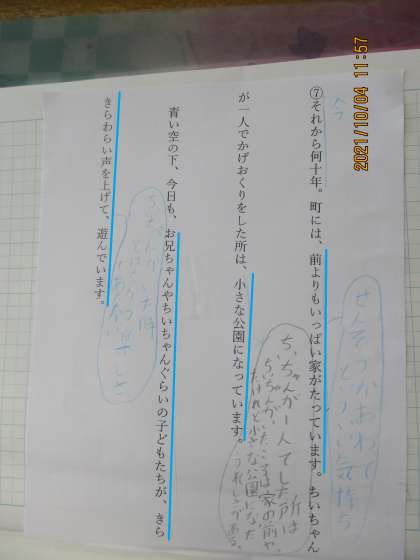 今
⑦それから何十年。町には、前よりもいっぱい家がたっています。ちいちゃん
が一人でかげおくりをした所は、小さな公園になっています。
青い空の下、今日も、お兄ちゃんやちいちゃんぐらいの子どもたちが、きら
きらわらい声を上げて、遊んでいます。
せんそうがおわって
という気持ち
ちいちゃんが一人でした所は
ちいちゃんが、いたころは家の前や、
だけれど小さな公園になった
うれしさがある。
2021/10/04 11:57